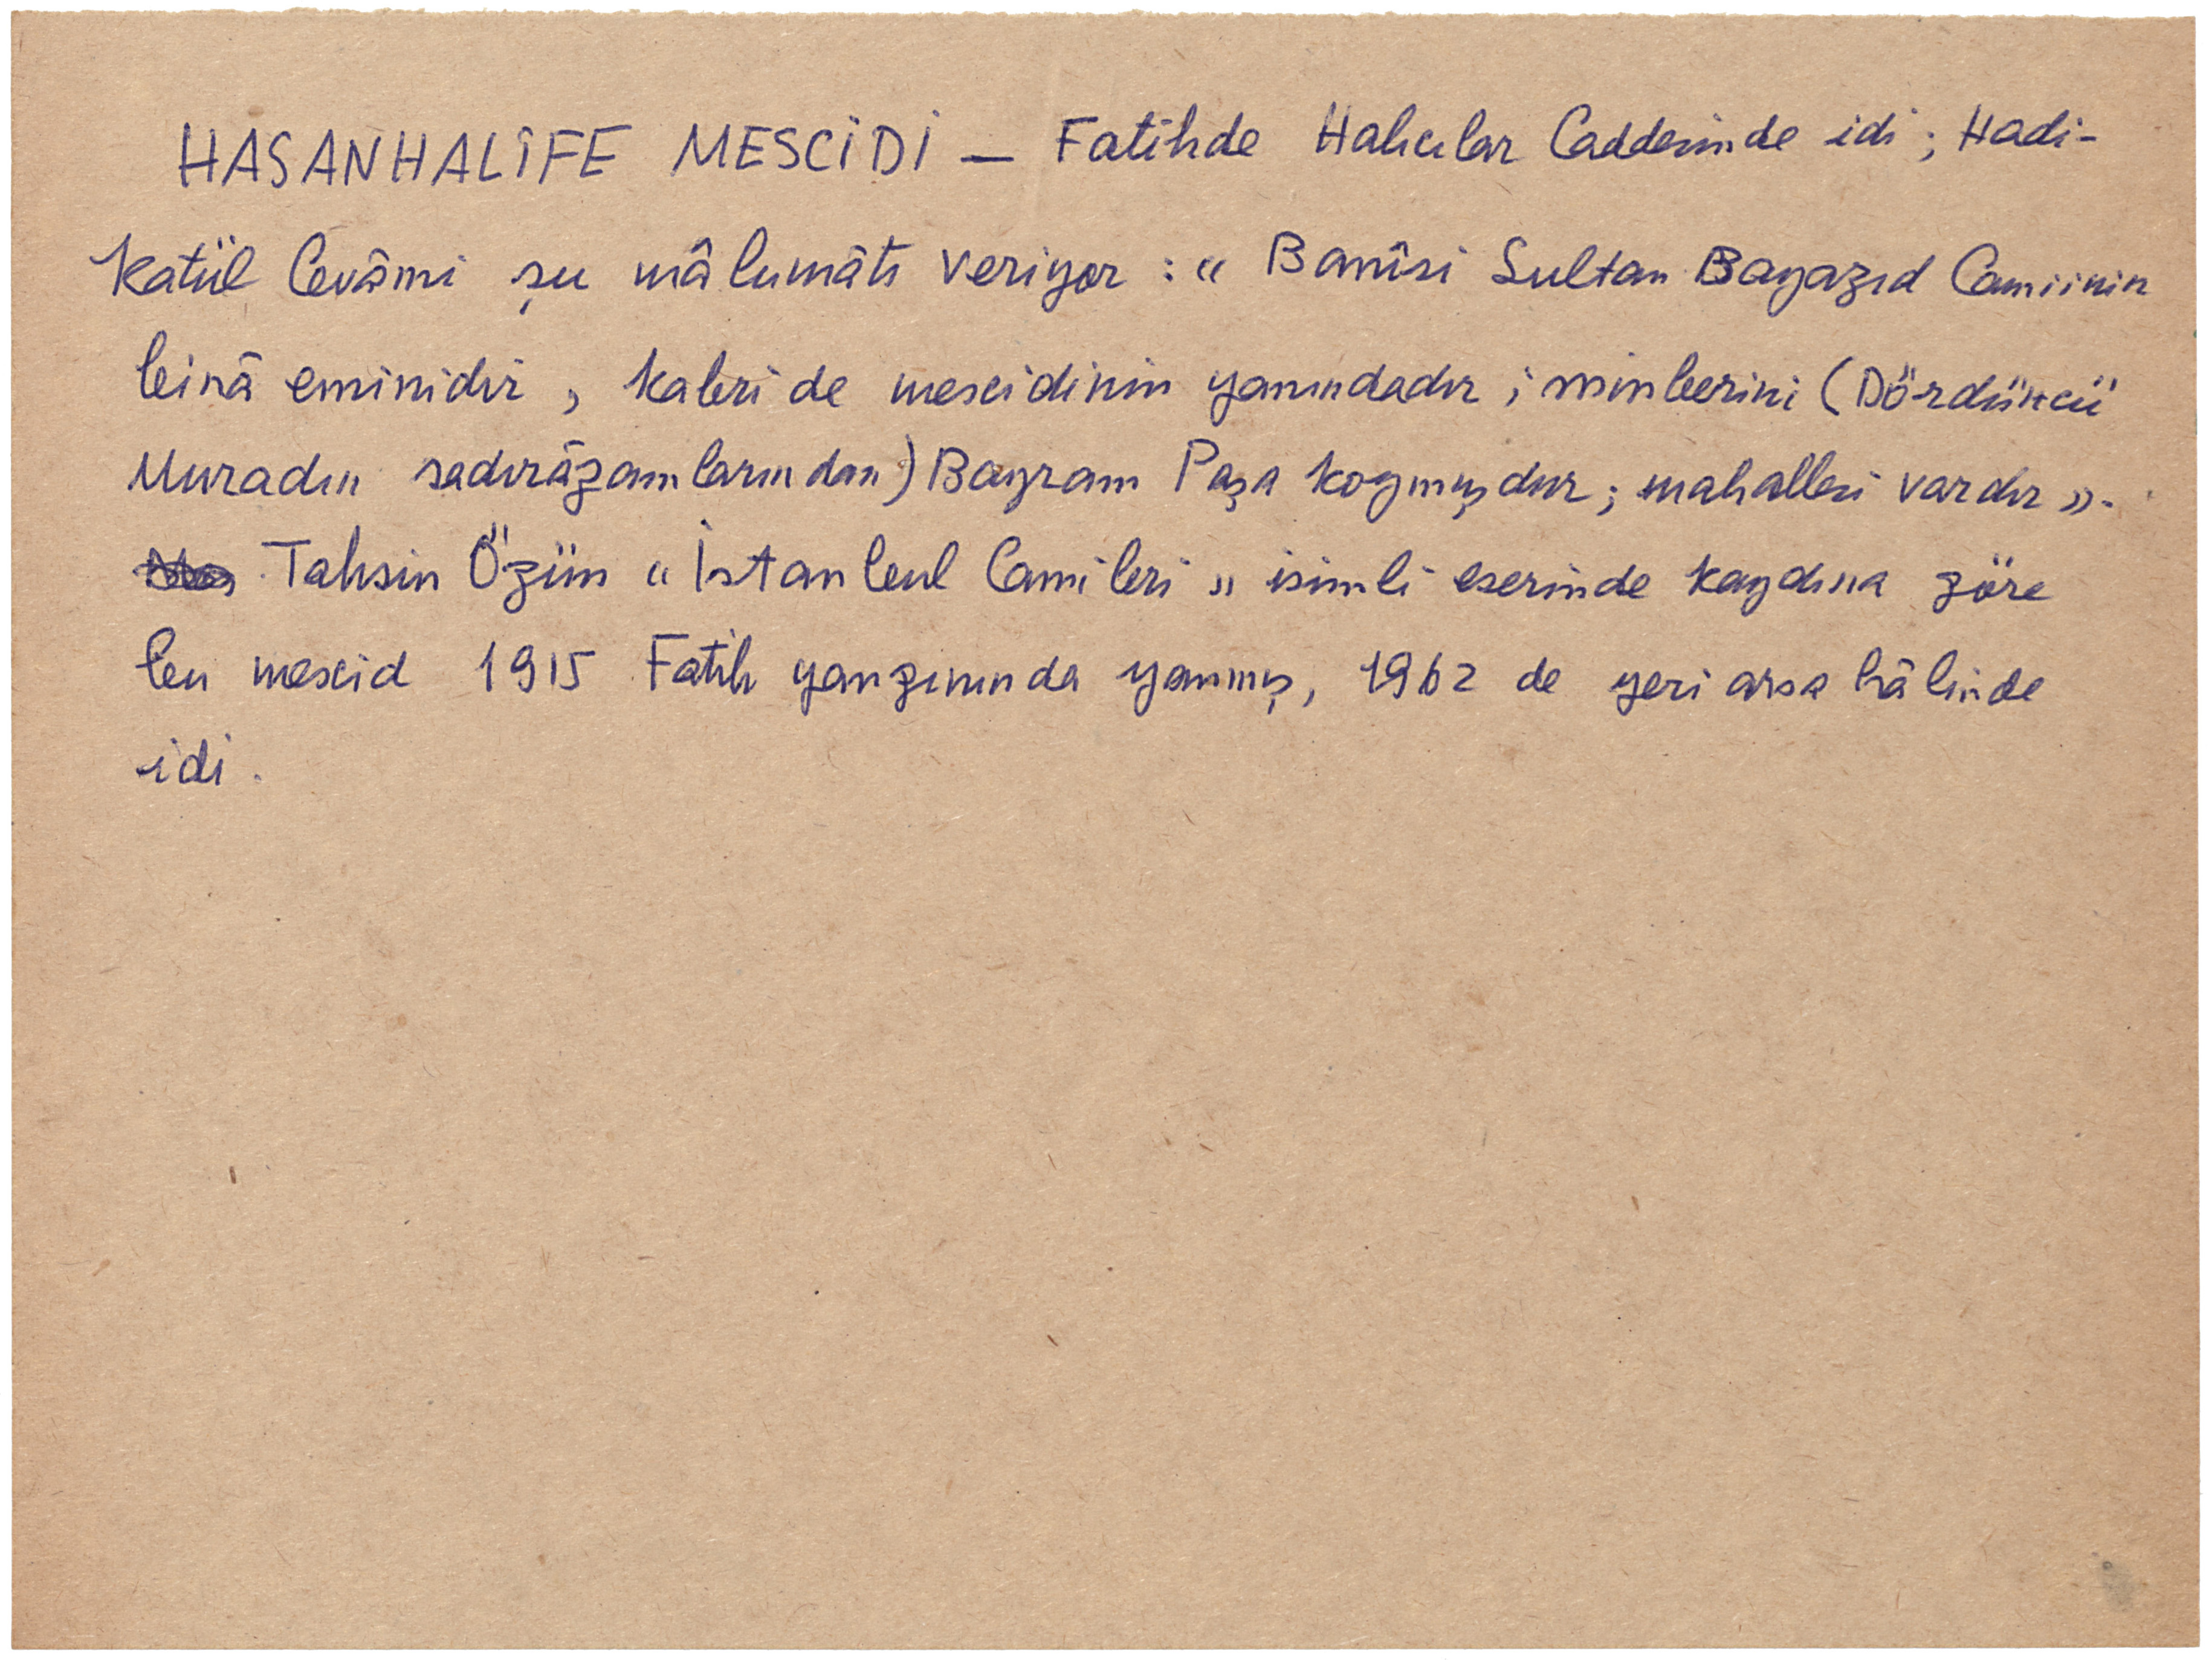 HASANHALİFE MESCİDİ — Fatihde Halıcılar Caddesinde idi; Hadi-
katül Cevâmi şu mâlumâtı veriyor : « Banîsi Sultan Bayazıd Camiinin
binâ eminidir, kabri de mescidinin yanındadır; minberini (Dördüncü
Muradın sadırâzamlarından) Bayram Paşa koymuşdur; mahallesi vardır ».
Tahsin Özün « İstanbul Camileri » isimli eserinde kaydına göre
bu mescid 1915 Fatih yangınında yanmış, 1962 de yeri arsa hâlinde
idi.